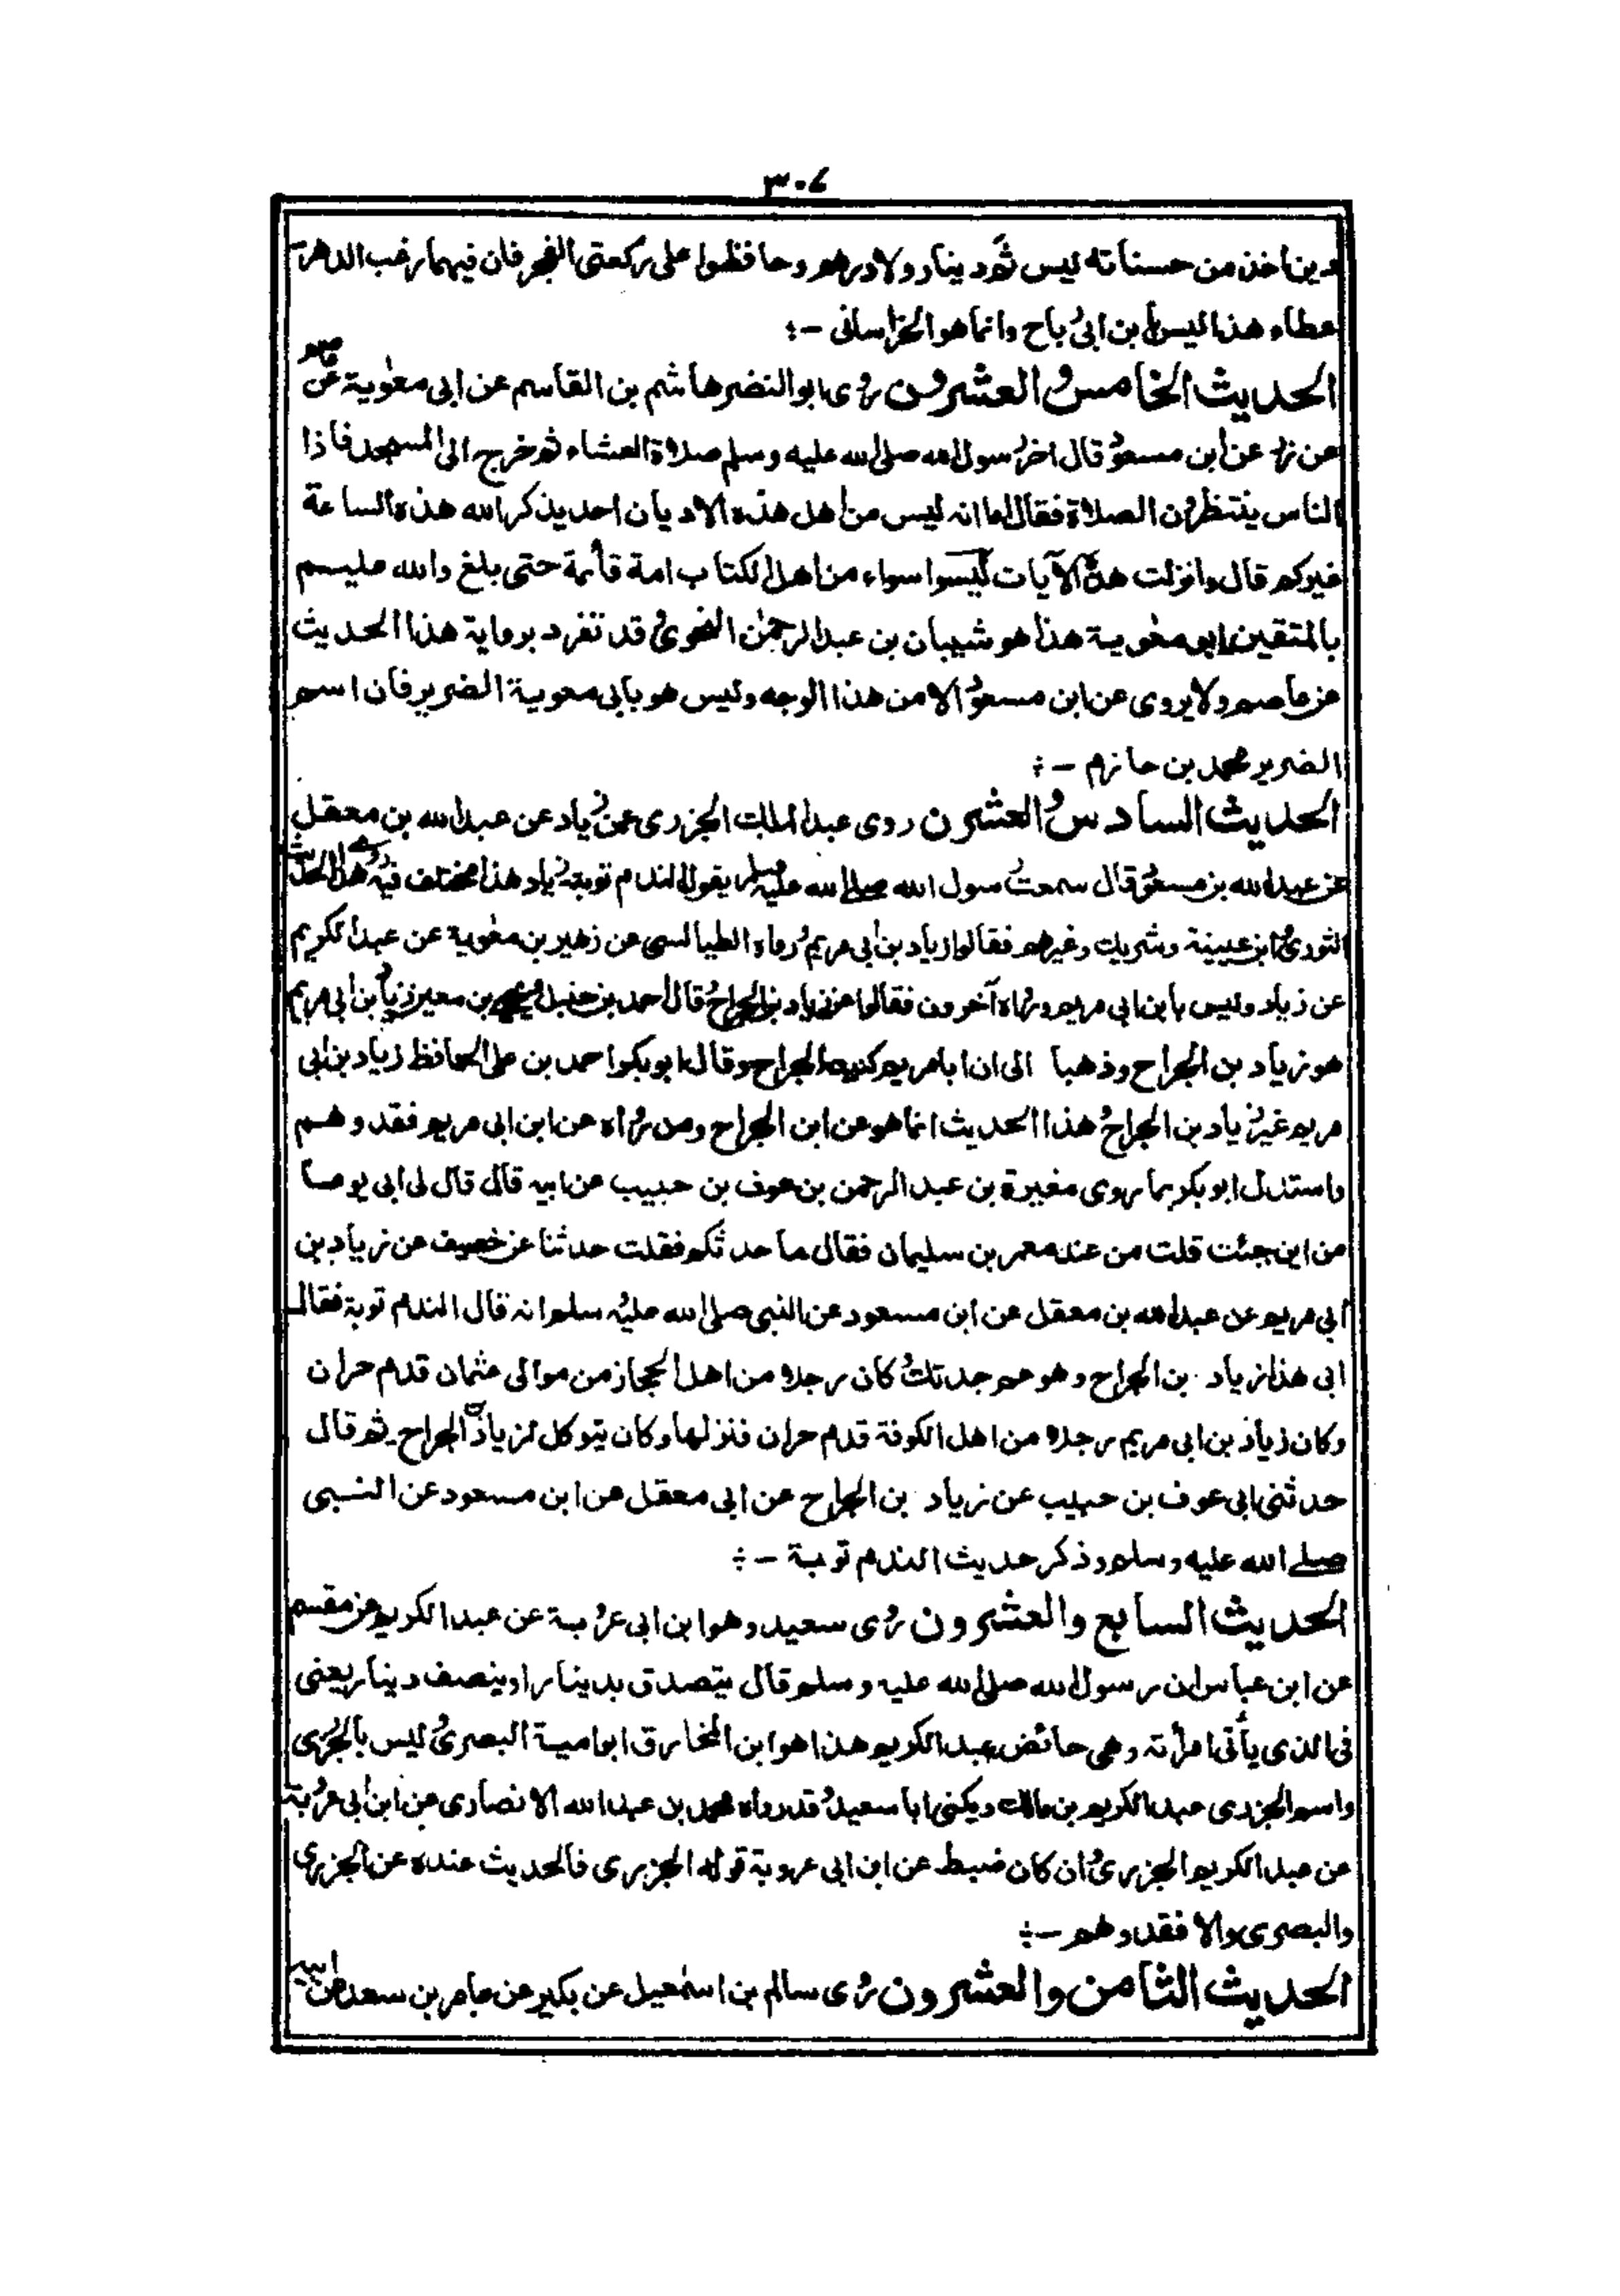 ٣٠٤
دين اخذ من حسناته ليس ثم دينار ولا درهم وحافظوا على ركعتى الفجر فان فيهما رغب الدهر
عطاء هذا ليس بابن ابى رباح وانما هو الخراسانى -:
الحديث الخامس والعشرون روى ابو النضر هاشم بن القاسم عن ابى معٰوية عن عاصم
عن زر عن ابن مسعود قال اخر رسول الله صلى الله عليه وسلم صلاة العشاء ثم خرج الى المسجد فاذا
الناس ينتظرون الصلاة فقال اما انه ليس من اهل هذه الاديان احد يذكر الله هذه الساعة
غيركم قال وانزلت هذه الآيات ليسوا سواء من اهل الكتاب امة قائمة حتى بلغ والله عليم
بالمتقين ابو معٰوية هذا هو شيبان بن عبد الرحمٰن النحوى وقد تفرد برواية هذا الحديث
عن عاصم ولا يروى عن ابن مسعود الا من هذا الوجه وليس هو بابى معوية الضرير فان اسم
الضرير محمد بن حازم -:
الحديث السادس والعشرون روى عبد الملك الجزرى عن زياد عن عبد الله بن معقل
عن عبد الله بن مسعود قال سمعت رسول الله صلى الله عليه وسلم يقول الندم توبة زياد هذا مختلف فيه روى هذا الحديث
الثورى وابن عيينة وشريك وغيرهم فقالوا زياد بن ابى مريم ورواه الطيالسى عن زهير بن معٰوية عن عبد الكريم
عن زياد وليس بابن ابى مريم ورواه آخرون فقالوا عن زياد بن الجراح وقال احمد بن حنبل ويحيى بن معين زياد بن ابى مريم
هو زياد بن الجراح وذهبا الى ان ابا مريم كنيه الجراح وقال ابو بكر احمد بن على الحافظ زياد بن ابى
مريم غير زياد بن الجراح وهذا الحديث انما هو عن ابن الجراح ومن رواه عن ابن ابى مريم فقد وهم
واستدل ابو بكر بما روى مغيرة بن عبد الرحمن بن عوف بن حبيب عن ابيه قال قال لى ابى يوما
من اين جئت قلت من عند معمر بن سليمان فقال ما حدثكم فقلت حدثنا عن خصيف عن زياد بن
ابى مريم عن عبد الله بن معقل عن ابن مسعود عن النبى صلى الله عليه وسلم انه قال الندم توبة فقال
ابى هذا زياد بن الجراح وهو عم جدتك وكان رجلا من اهل الحجاز من موالى عثمان قدم حران
وكان زياد بن ابى مريم رجلا من اهل الكوفة قدم حران فنزلها وكان يتوكل لزياد بن الجراح ثم قال
حدثنى ابى عوف بن حبيب عن زياد بن الجراح عن ابى معقل عن ابن مسعود عن النبى
صلى الله عليه وسلم وذكر حديث الندم توبة -:
الحديث السابع والعشرون روى سعيد وهو ابن ابى عروبة عن عبد الكريم عن مقسم
عن ابن عباس ان رسول الله صلى الله عليه وسلم قال يتصدق بدينار او بنصف دينار يعنى
فى الذى يأتى امرأته وهى حائض عبد الكريم هذا هو ابن المخارق ابو امية البصرى وليس بالجزرى
واسم الجزرى عبد الكريم بن مالك ويكنى ابا سعيد وقد رواه محمد بن عبد الله الانصارى عن ابن ابى عروبة
عن عبد الكريم الجزرى وان كان ضبط عن ابن ابى عروبة قوله الجزرى فالحديث عنده عن الجزرى
والبصرى والا فقد وهم -:
الحديث الثامن والعشرون روى سالم بن اسمٰعيل عن بكير عن عامر بن سعد عن ابيه